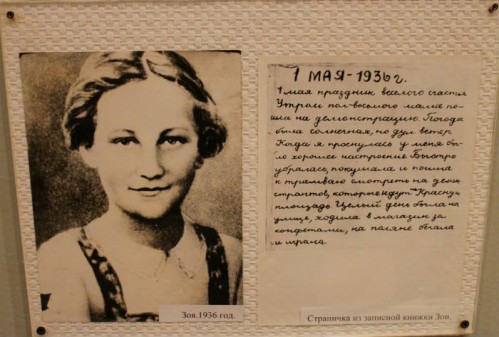 1 МАЯ-1936 г.
1 мая праздник веселого счастья
Утром пол-восьмого мама по-
шла на демонстрацию. Погода
была солнечная, но дул ветер
Когда я проснулась у меня бы-
ло хорошее настроение Быстро
убралась, покушала и пошла
к трамваю смотреть на демон-
странтов, которые идут на Красную
площадь Целый день была на
улице, ходила в магазин за
конфетами, на поляне бегала
и играла
Зоя.1936 год.
Страничка из записной книжки Зои.